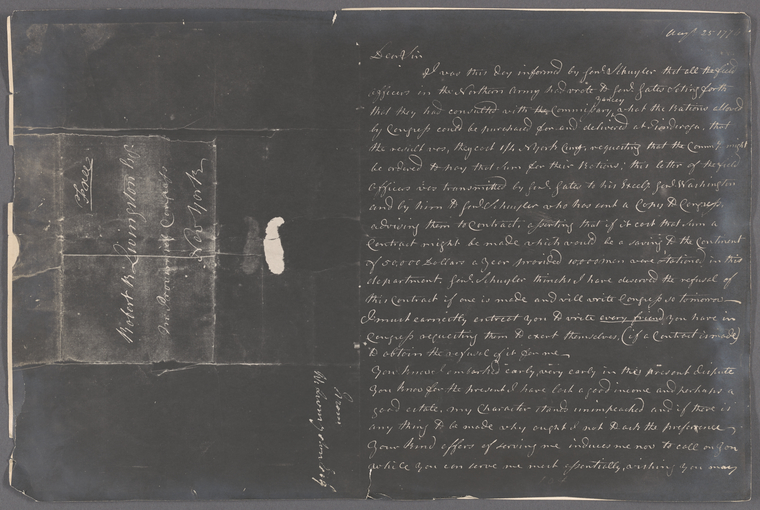 Augt 25 177
Dear Sir
I was this day informed by Genl Schuyler that all the field
officers in the Northern Army had wrote to Genl Gates seting forth
that they had consulted with the Commissary, what the Rations allowed
by Congress could be purchased for and delivered at Tionderoga, that
the result was, they cost 1/4 NYork Curcy requesting that the Commy might
be ordered to pay that sum for their Rations; this letter of the field
Officers was transmitted by Genl Gates to his Excely Genl Washington
and by him to Genl Schuyler who has sent a Copy to Congress
advising them to Contract, asserting that if it cost that sum a
Contract might be made which would be a saving to the Continent
of 50,000 Dollars a Year provided 10000 men were stationed in this
department. Genl Schuyler thincks I have deserved the refusal of
this Contract if one is made and will write Congress so tomorrow
I must earnestly entreat you to write every friend you have in
Congress requesting them to exert themselves, (if a Contract is made)
to obtain the refusal of it for me
You know I embarked early, very early in the present dispute
You know for the present I have lost a good income and perhaps a
good estate, my Character stands unimpeached and if there is
any thing to be made why ought I not to ask the preference
Your kind offers of serving me induces me now to call on you
while you can serve me most essentially, wishing you may
Free
Robert R. Livingston Esqr.
in Provincial Congress
New York
from